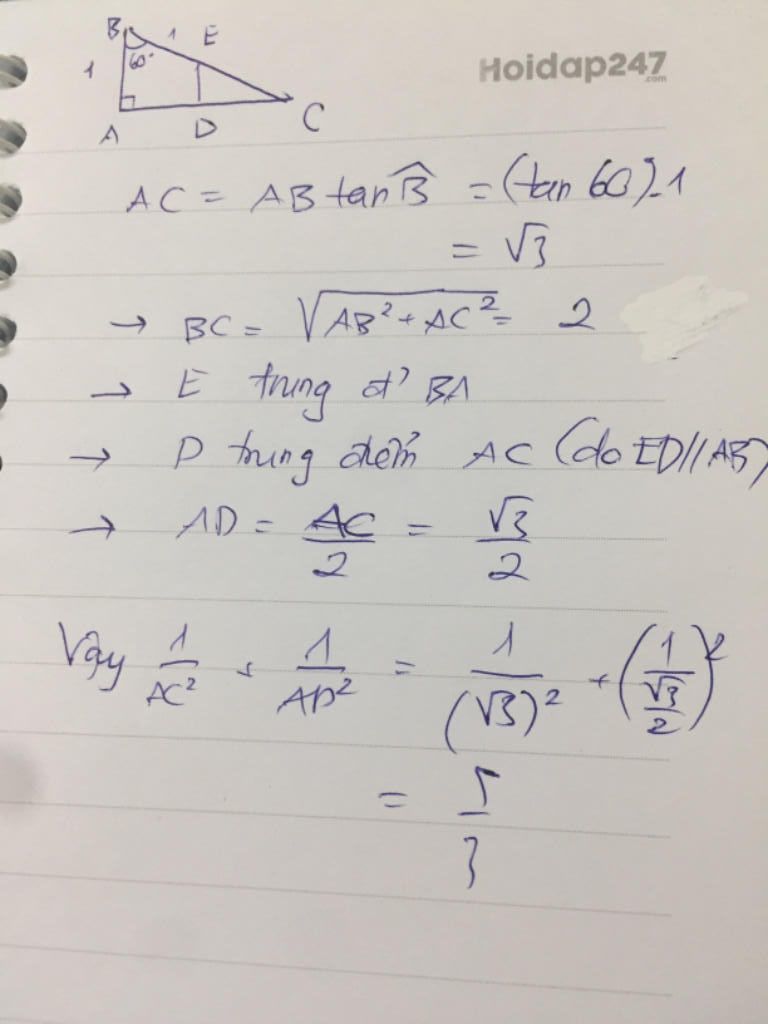 B 1 E
Hoidap247
.com
1 60°
A D C
AC = AB tan B̂ = (tan 60).1
= √3
→ BC = √(AB² + AC²) = 2
→ E trung đ' BA
→ D trung điểm AC (do ED//AB)
→ AD = AC/2 = √3/2
Vậy 1/AC² + 1/AD² = 1/(√3)² + (1/(√3/2))²
= 5/3